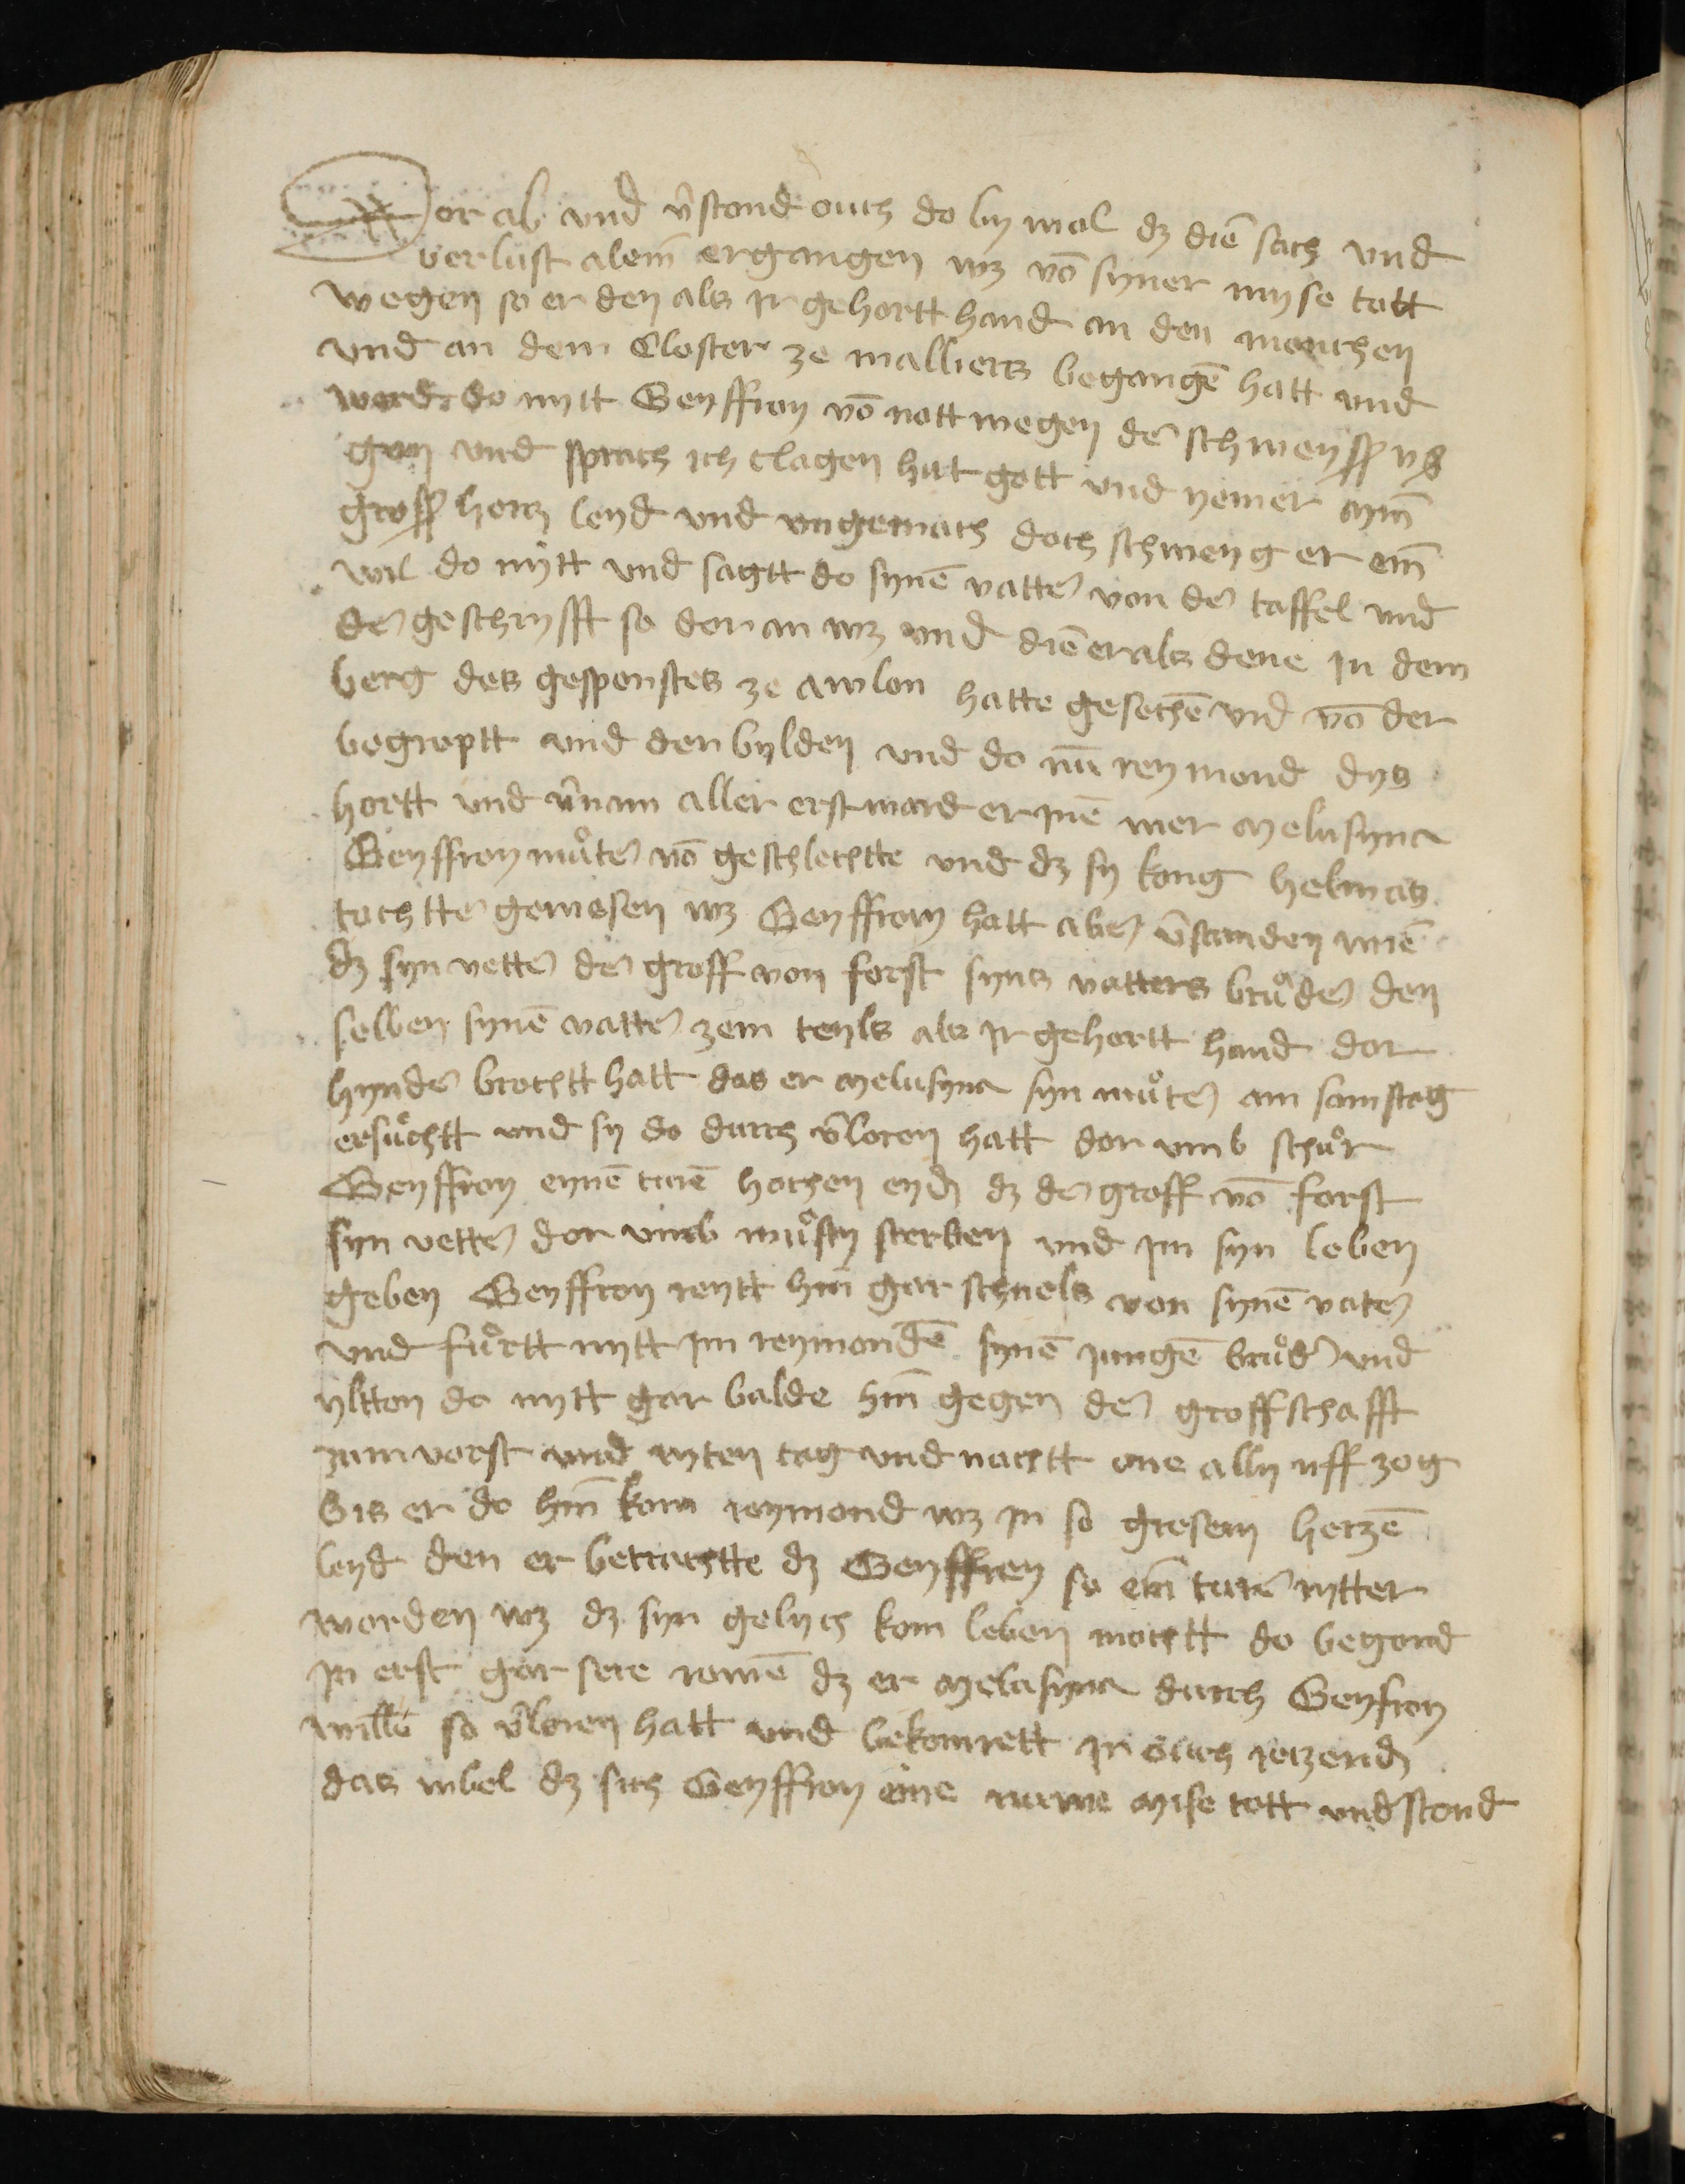 Dor ab und v̄stond ouch do by wol dz diē sach und
verlust alein̄ ergangen wz vō syner myse tatt
wegen so er den als jr gehortt hand an den monchen
und an dem Closter ze malliers begangē hatt und
ward do mytt Geyffroy vō nott wegen dē schweyß uß
gon und sprach ich clagen hut gott und yemer min̄
groß hertz leyd und ungemach doch schweyg er ein̄
wil do mytt und sagtt do synē vatter von der taffel und
der geschryfft so dor an wz und diē er als dene jn dem
berg des gespenstes ze awlon hatte gesechē und vō der
begreptt und den bylden und do nū reymond dys
hortt und v̄nam aller erst ward er jnē wer melusyna
Geyffroy můter vō geschlechtte und dz sy kong helmas
tochtter gewesen wz Geyffroy hatt aber v̄standen wiē
dz syn vetter der groff von forst syns vatters brůder den
selben synē vatter zem teyls als jr gehortt hand dor
hynder brochtt hatt das er melusyna syn můter am samstag
ersůchtt und sy do durch v̄loren hatt dor umb schůr
Geyffroy eynē turē hochen eyd dz der groff vō forst
syn vetter dor umb můsty sterben und jm syn leben
geben Geyffroy reytt hin̄ gar schnels von synē vater
und fůrtt mytt jm reymondē synē jungē brůder und
yltton do mytt gar balde hin̄ gegen der groffschafft
zum vorst und ryten tag und nachtt one ally uff zog
bis er do hin̄ kom reymond wz jn so gresem hertzē
leyd den er betrachtte dz Geyffroy so ein̄ turer rytter
worden wz dz syn gelych kom leben mochtt do begond
jn erst gar sere rowē dz er melusyna durch Geyfroy
willē so v̄loren hatt und bekomrett jn ouch jetzend
das wbel dz sich Geyffroy eine nuwe mise tott und stond